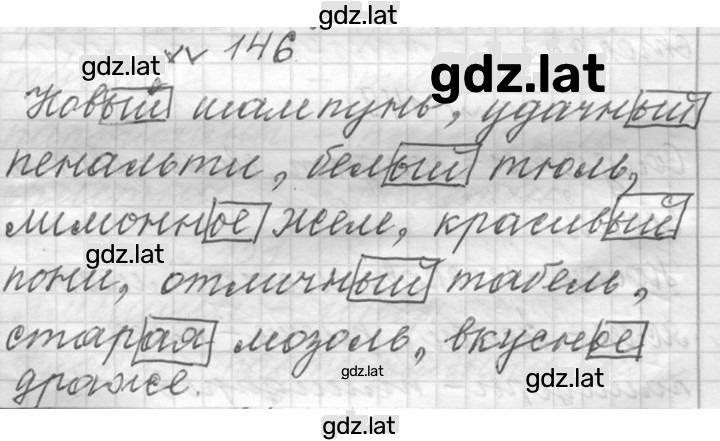 gdz.lat
146
gdz.lat
gdz.lat
Новый шампунь, удачный
пенальти, белый тюль,
лимонное желе, красивый
gdz.lat
пони, отличный табель,
старая мозоль, вкусное
gdz.lat
драже.
gdz.lat
gdz.lat